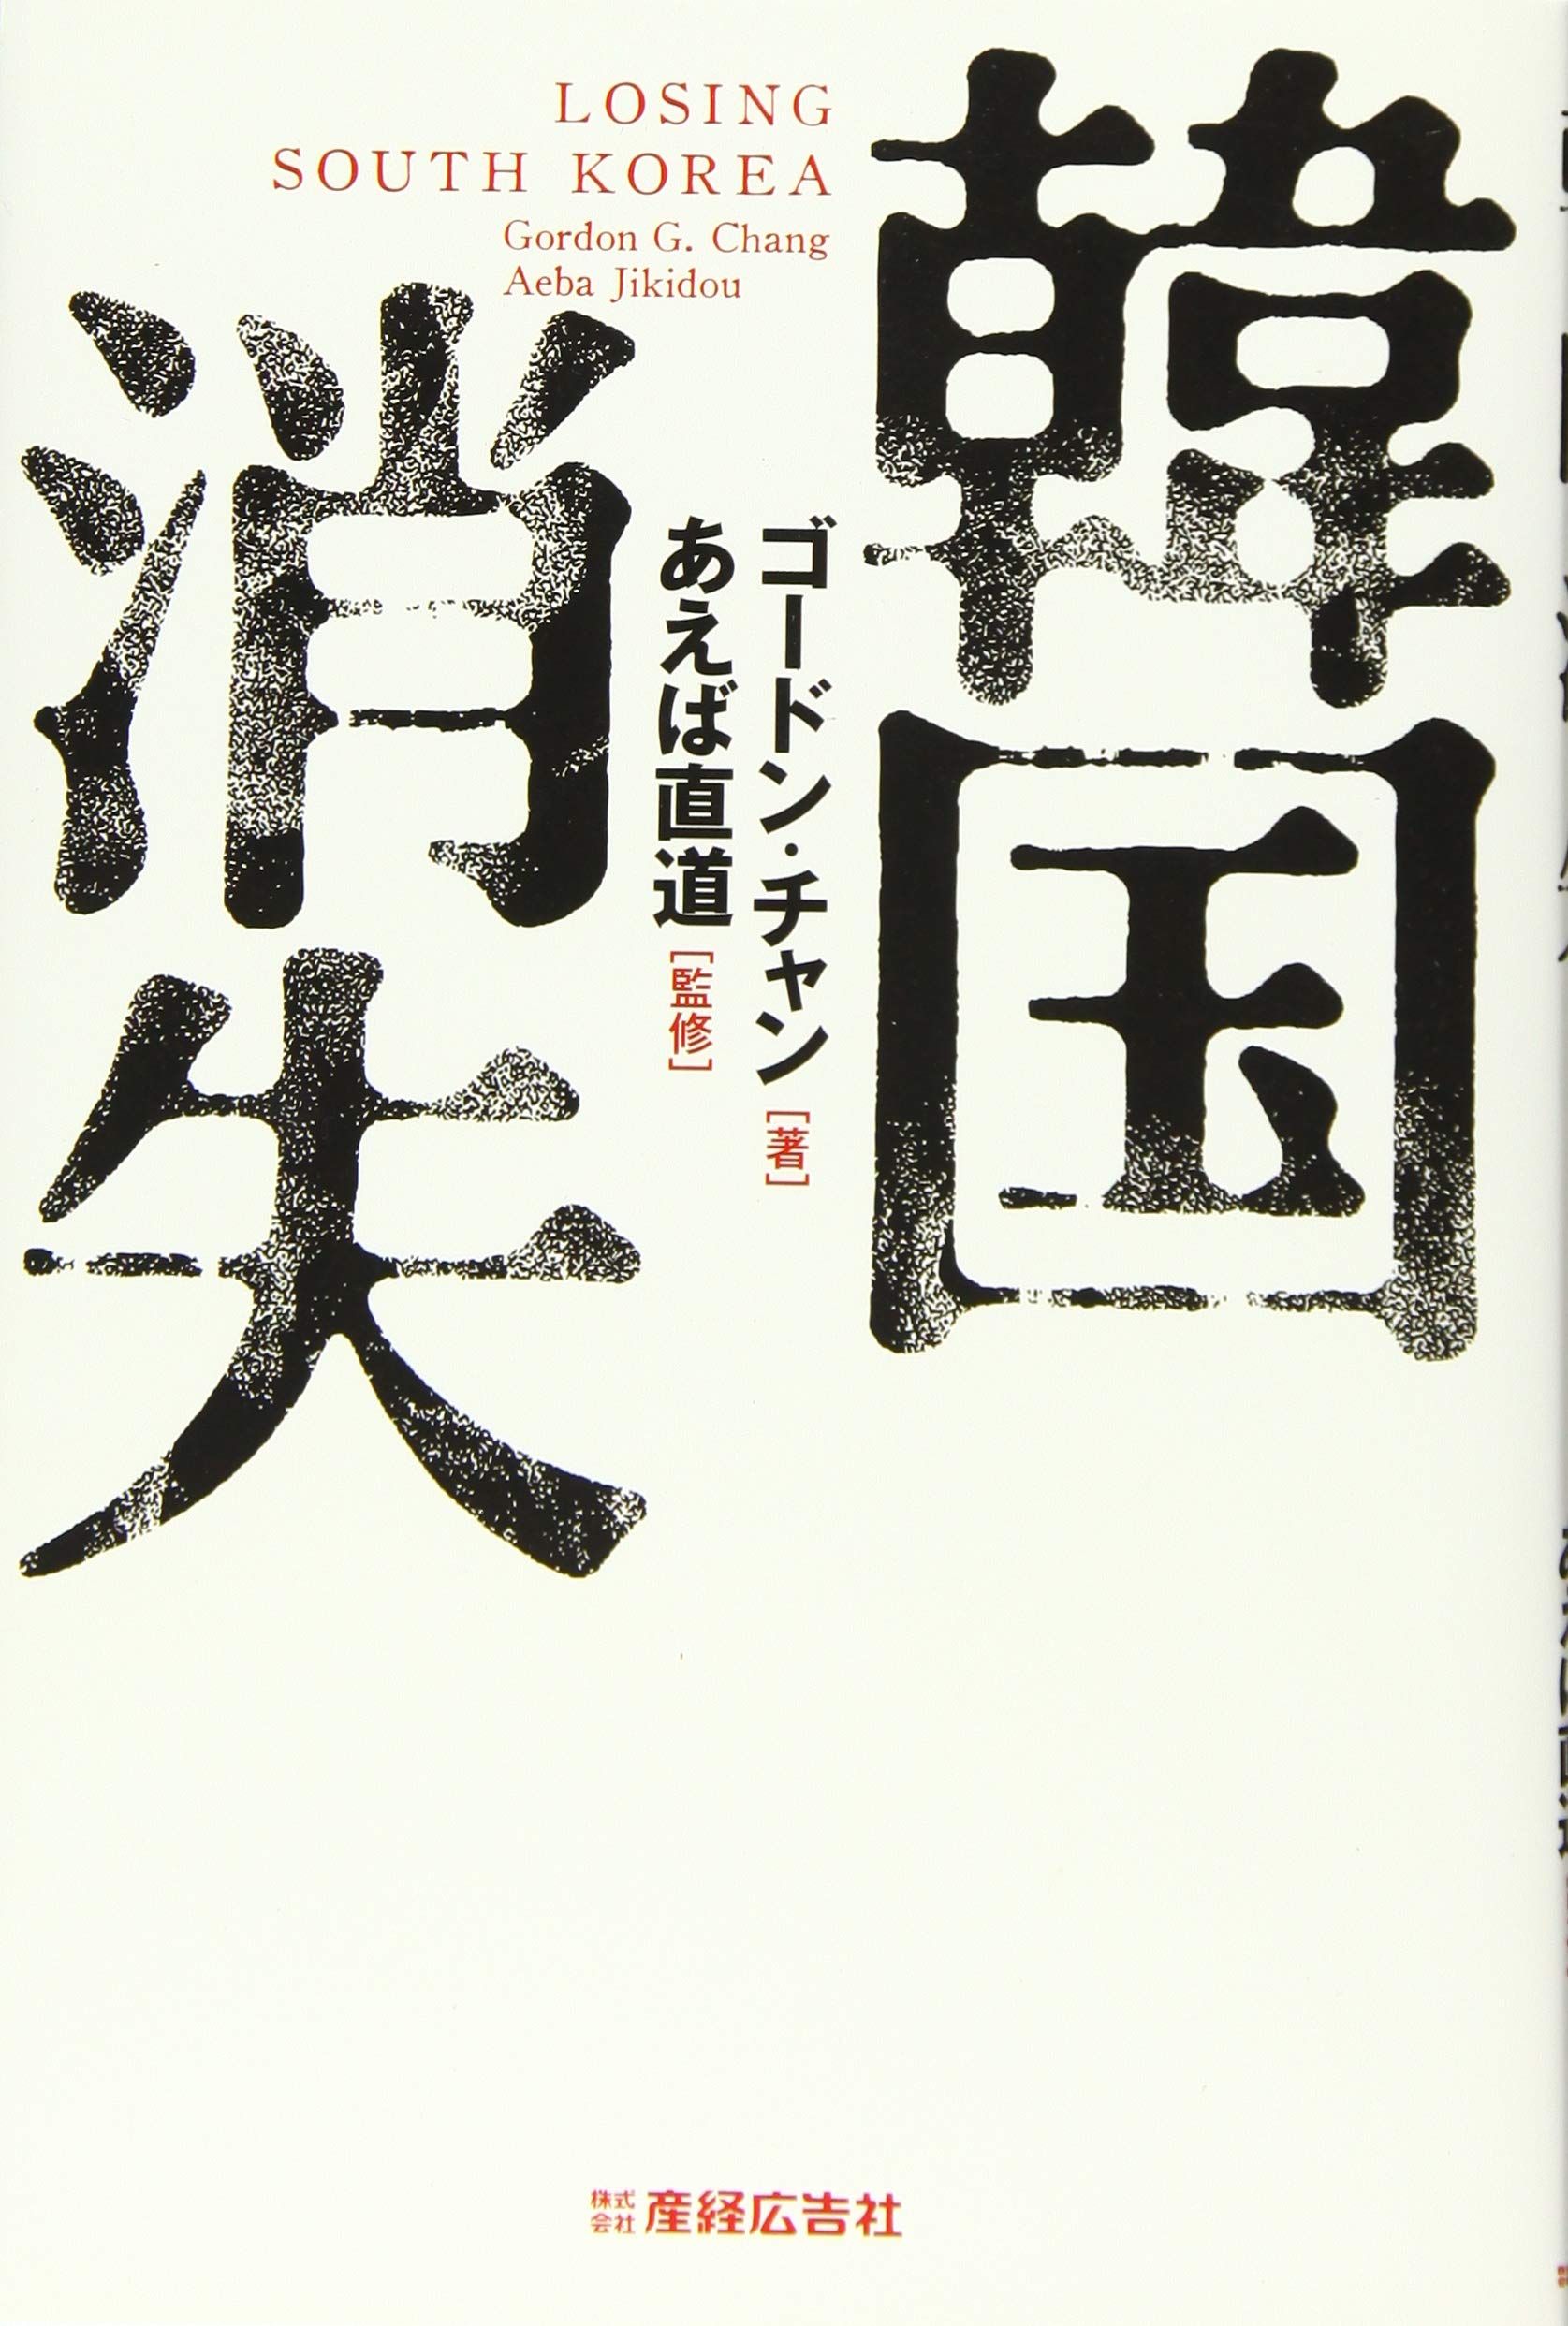 韓国
消失
LOSING
SOUTH KOREA
Gordon G. Chang
Aeba Jikidou
ゴードン・チャン［著］
あえば直道［監修］
株式会社 産経広告社